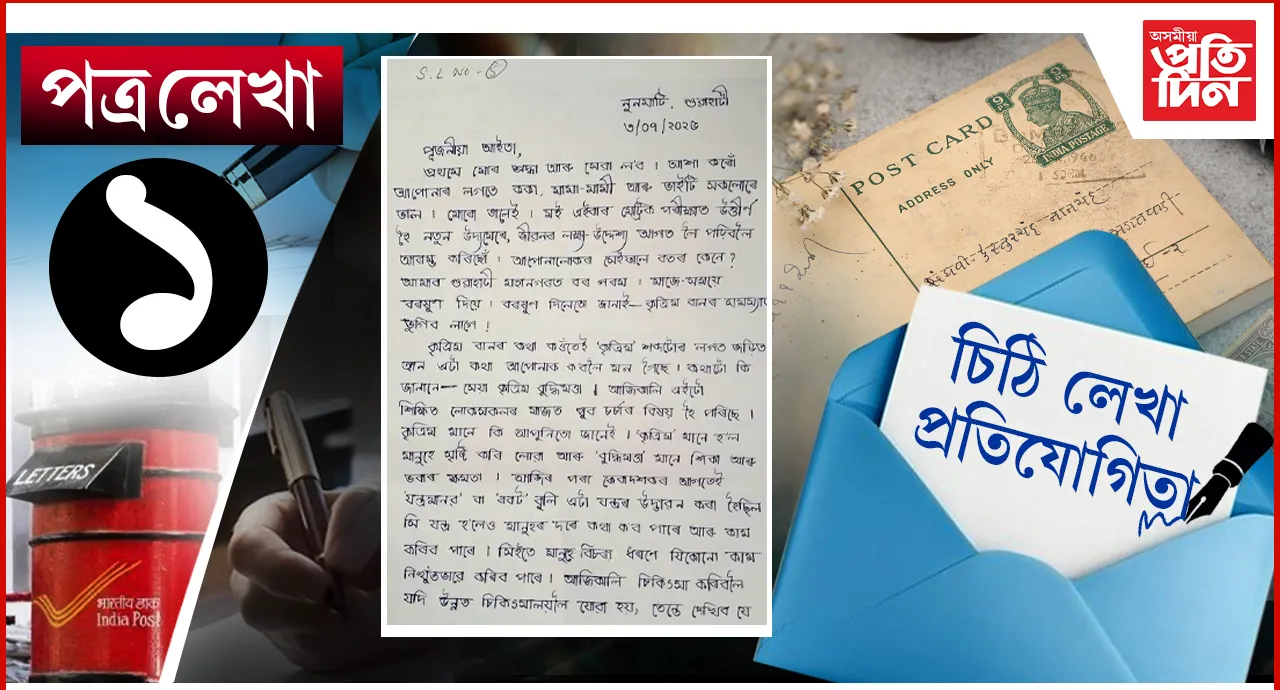 পত্ৰলেখা
১
অসমীয়া
প্ৰতি
দিন
S.L No - 5
নুনমাটি, গুৱাহাটী
৩/০৭/২০২৫
পূজনীয়া আইতা,
প্ৰথমে মোৰ শ্ৰদ্ধা আৰু সেৱা ল'ব । আশা কৰোঁ
আপোনাৰ লগতে ককা, মামা-মামী আৰু ভাইটি সকলোৰে
ভাল । মোৰো ভালেই । মই এইবাৰ মেট্ৰিক পৰীক্ষাত উত্তীৰ্ণ
হৈ নতুন উদ্যমেৰে, জীৱনৰ লক্ষ্য-উদ্দেশ্য আগত লৈ পঢ়িবলৈ
আৰম্ভ কৰিছোঁ । আপোনালোকৰ সেইফালে বতৰ কেনে ?
আমাৰ গুৱাহাটী মহানগৰত বৰ গৰম । মাজে-সময়ে
বৰষুণ দিয়ে । বৰষুণ দিলেতো জানাই— কৃত্ৰিম বানৰ সমস্যাত
ভুগিব লাগে !
কৃত্ৰিম বানৰ কথা কওঁতেই 'কৃত্ৰিম' শব্দটোৰ লগত জড়িত
আন এটা কথা আপোনাক কবলৈ মন গৈছে । কথাটো কি
জানানে— সেয়া কৃত্ৰিম বুদ্ধিমত্তা । আজিকালি এইটো
শিক্ষিত লোকসকলৰ মাজত খুব চৰ্চাৰ বিষয় হৈ পৰিছে ।
কৃত্ৰিম মানে কি আপুনিতো জানেই । 'কৃত্ৰিম' মানে হ'ল
মানুহে সৃষ্টি কৰি লোৱা আৰু 'বুদ্ধিমত্তা' মানে শিকা আৰু
ভবাৰ ক্ষমতা । আজিৰ পৰা কেবাদশকৰ আগতেই
'যন্ত্ৰমানৱ' বা 'ৰবট' বুলি এটা যন্ত্ৰৰ উদ্ভাৱন কৰা হৈছিল
সি যন্ত্ৰ হ'লেও মানুহৰ দৰে কথা ক'ব পাৰে আৰু কাম
কৰিব পাৰে । সিহঁতে মানুহে বিচৰা ধৰণে যিকোনো কাম
নিখুঁতভাৱে কৰিব পাৰে । আজিকালি চিকিৎসা কৰিবলৈ
যদি উন্নত চিকিৎসালয়লৈ যোৱা হয়, তেন্তে দেখিব যে
POST CARD
ADDRESS ONLY
9 PS
9 PS
INDIA POSTAGE
চিঠি লেখা
প্ৰতিযোগিতা
LETTERS
भारतीय डाक
India Post